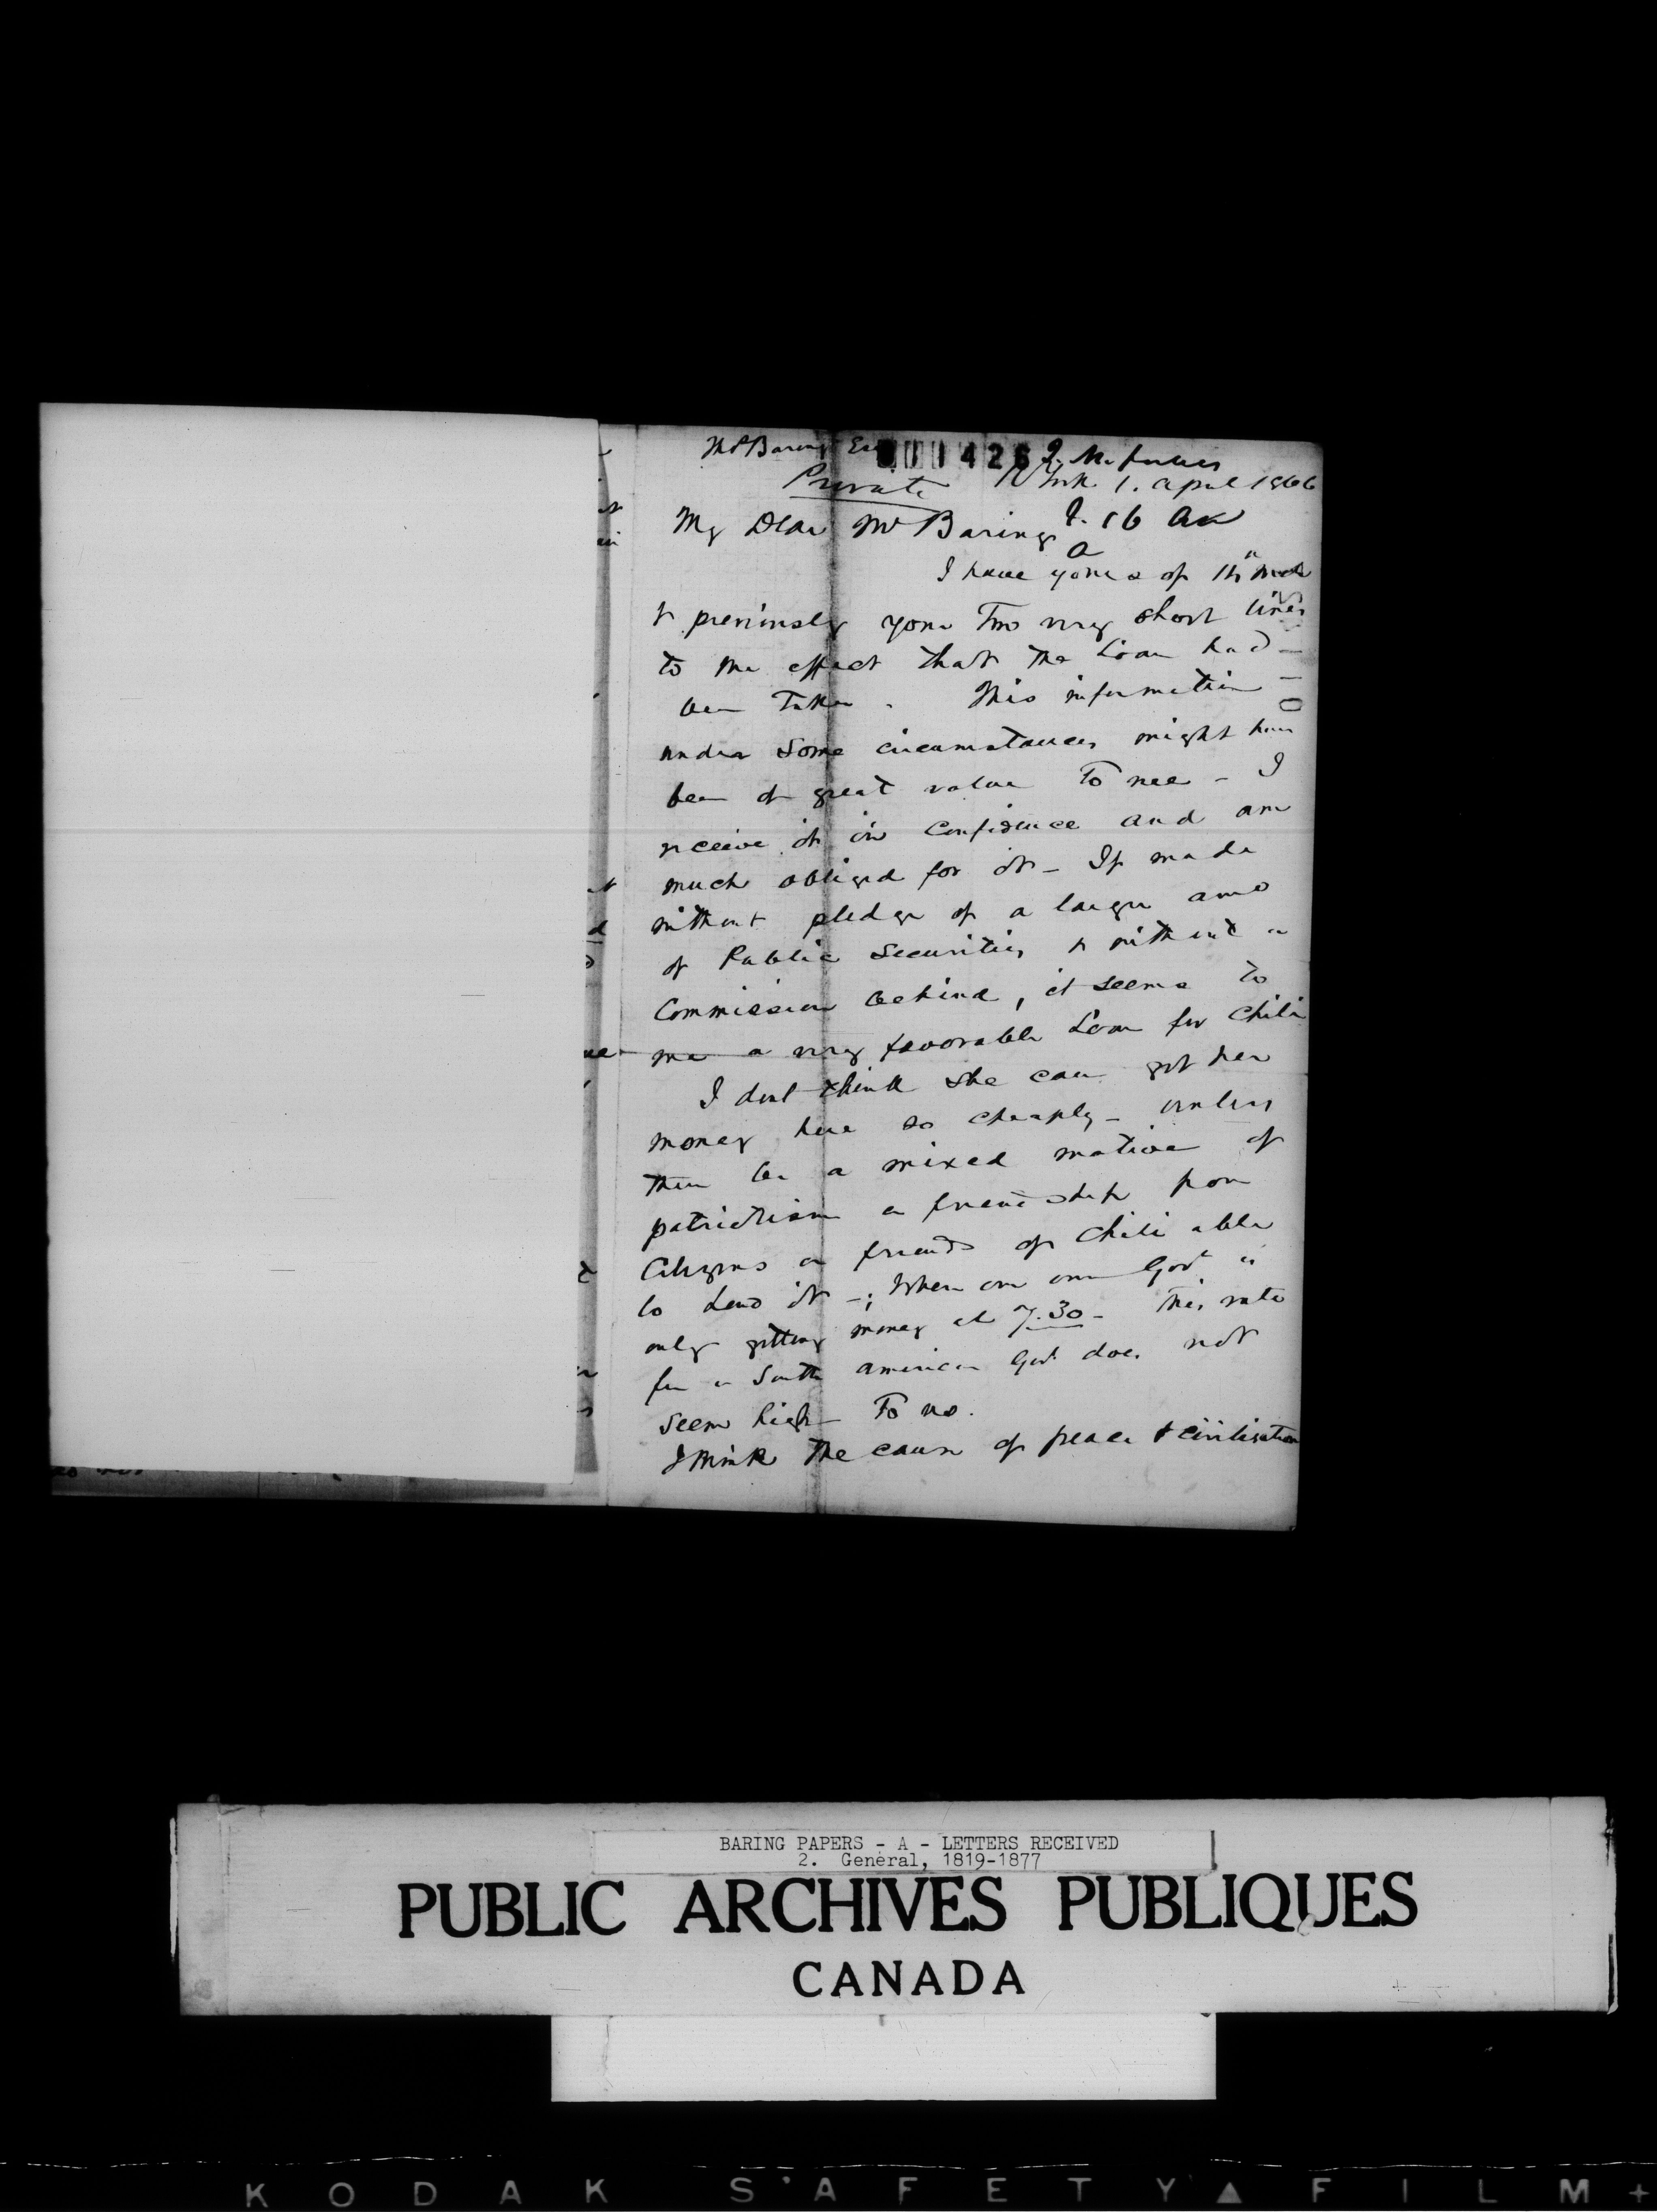 Ths Baring Esq
001426 J. M. Forbes
Private N York 1. april 1866
My Dear Mr Baring J. 16 an
a
I have yours of 15"
& previously your Two very short lines
to the effect that the Loan had
been Taken. This information
under Some circumstances might have
been of great value To me - I
receive it in Confidence and am
much obliged for it - If made
without pledge of a larger amo
of Public Securities & without a
Commission behind, it seems to
me a very favorable Loan for Chili
I dont think she can get her
money here so cheaply - unless
there be a mixed motive of
patriotism or friendship from
Citizens or friends of Chili able
to Lend it -; When our own Govt is
only getting money at 7.30 - this rate
for a South american Govt does not
seem high To us.
I think the cause of peace & civilisation
BARING PAPERS - A - LETTERS RECEIVED
2. General, 1819-1877
PUBLIC ARCHIVES PUBLIQUES
CANADA
KODAK SAFETY ▲ FILM +